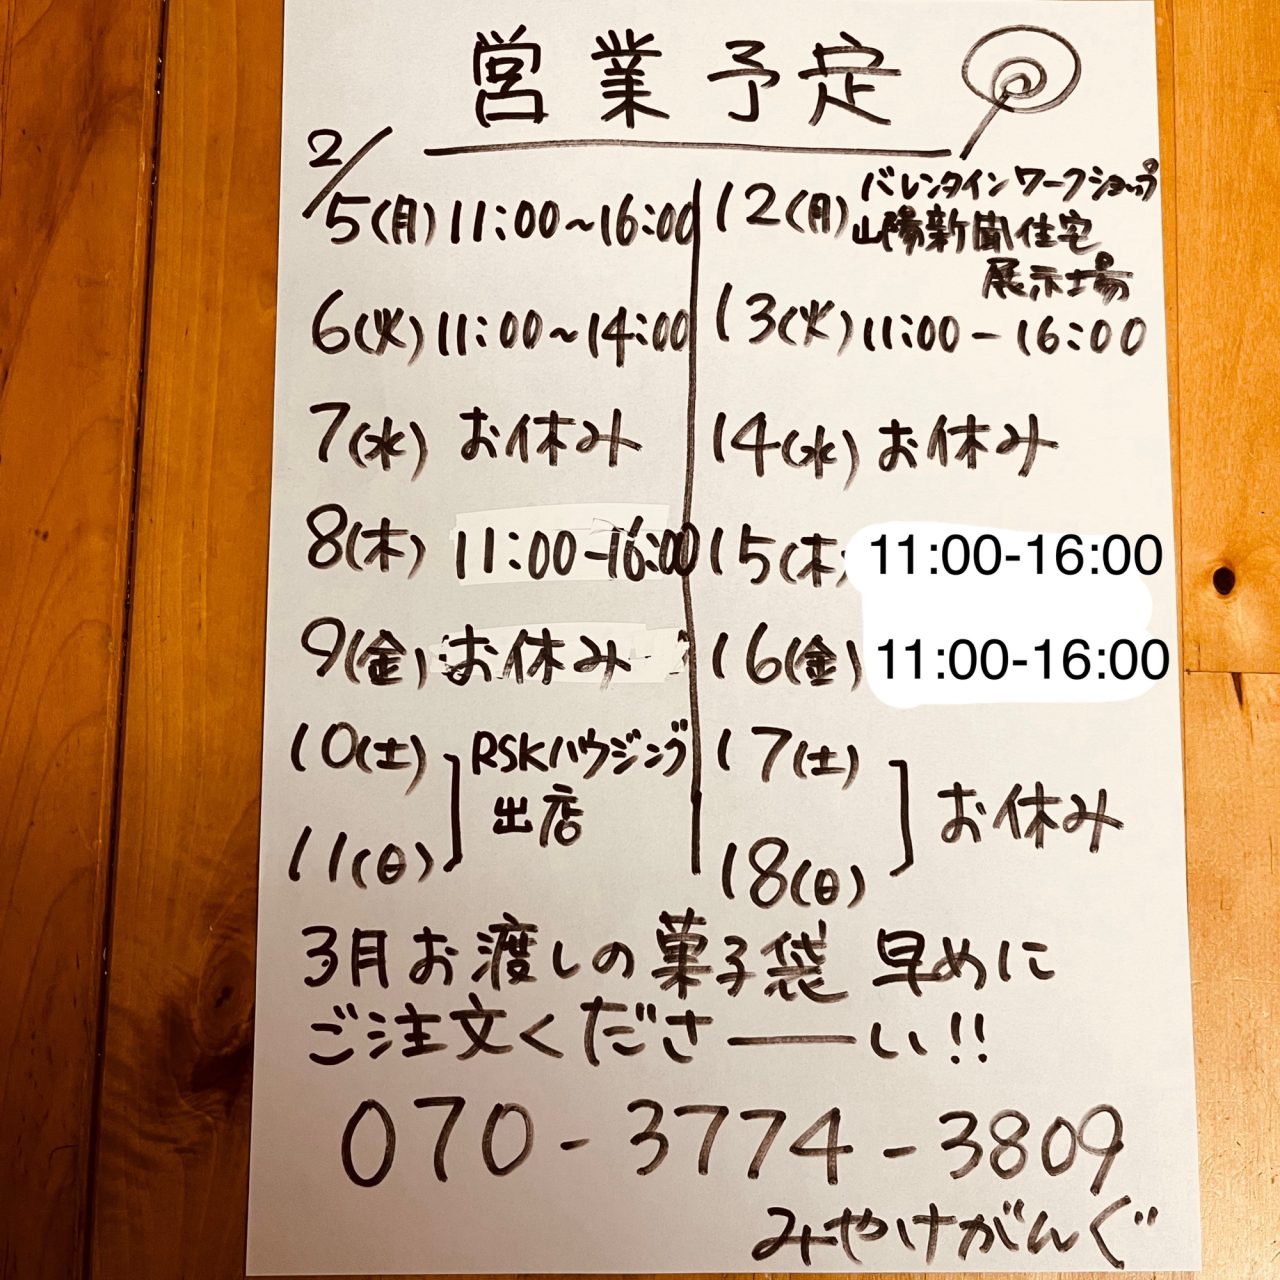 営業予定
2/
5(月) 11:00~16:00
6(火) 11:00~14:00
7(水) お休み
8(木) 11:00-16:00
9(金) お休み
10(土)
11(日)
RSKハウジング
出店
12(月) バレンタインワークショップ
山陽新聞住宅
展示場
13(火) 11:00-16:00
14(水) お休み
15(木) 11:00-16:00
16(金) 11:00-16:00
17(土)
18(日)
お休み
3月お渡しの菓子袋 早めに
ご注文くださーい!!
070-3774-3809
みやけがんぐ